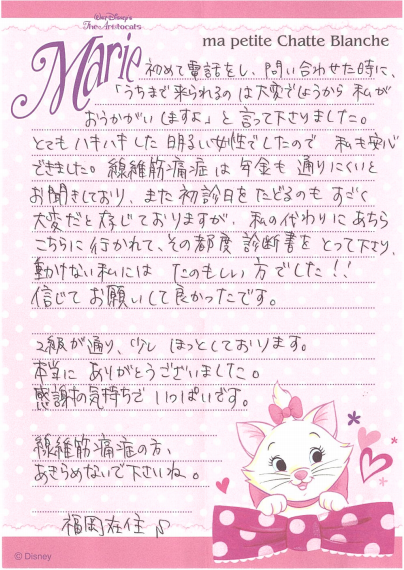 Walt Disney's
The Aristocats
Marie
ma petite Chatte Blanche
初めて電話をし、問い合わせた時に、
「うちまで来られるのは大変でしょうから私が
おうかがいしますよ」と言って下さりました。
とてもハキハキした明るい女性でしたので 私も安心
できました。線維筋痛症は年金も通りにくいと
お聞きしており、また初診日をたどるのもすごく
大変だと存じておりますが、私の代わりにあちら
こちらに行かれて、その都度診断書をとって下さり、
動けない私には たのもしい方でした!!
信じてお願いして良かったです。
2級が通り、少しほっとしております。
本当にありがとうございました。
感謝の気持ちでいっぱいです。
線維筋痛症の方、
あきらめないで下さいね。
福岡在住♪
© Disney